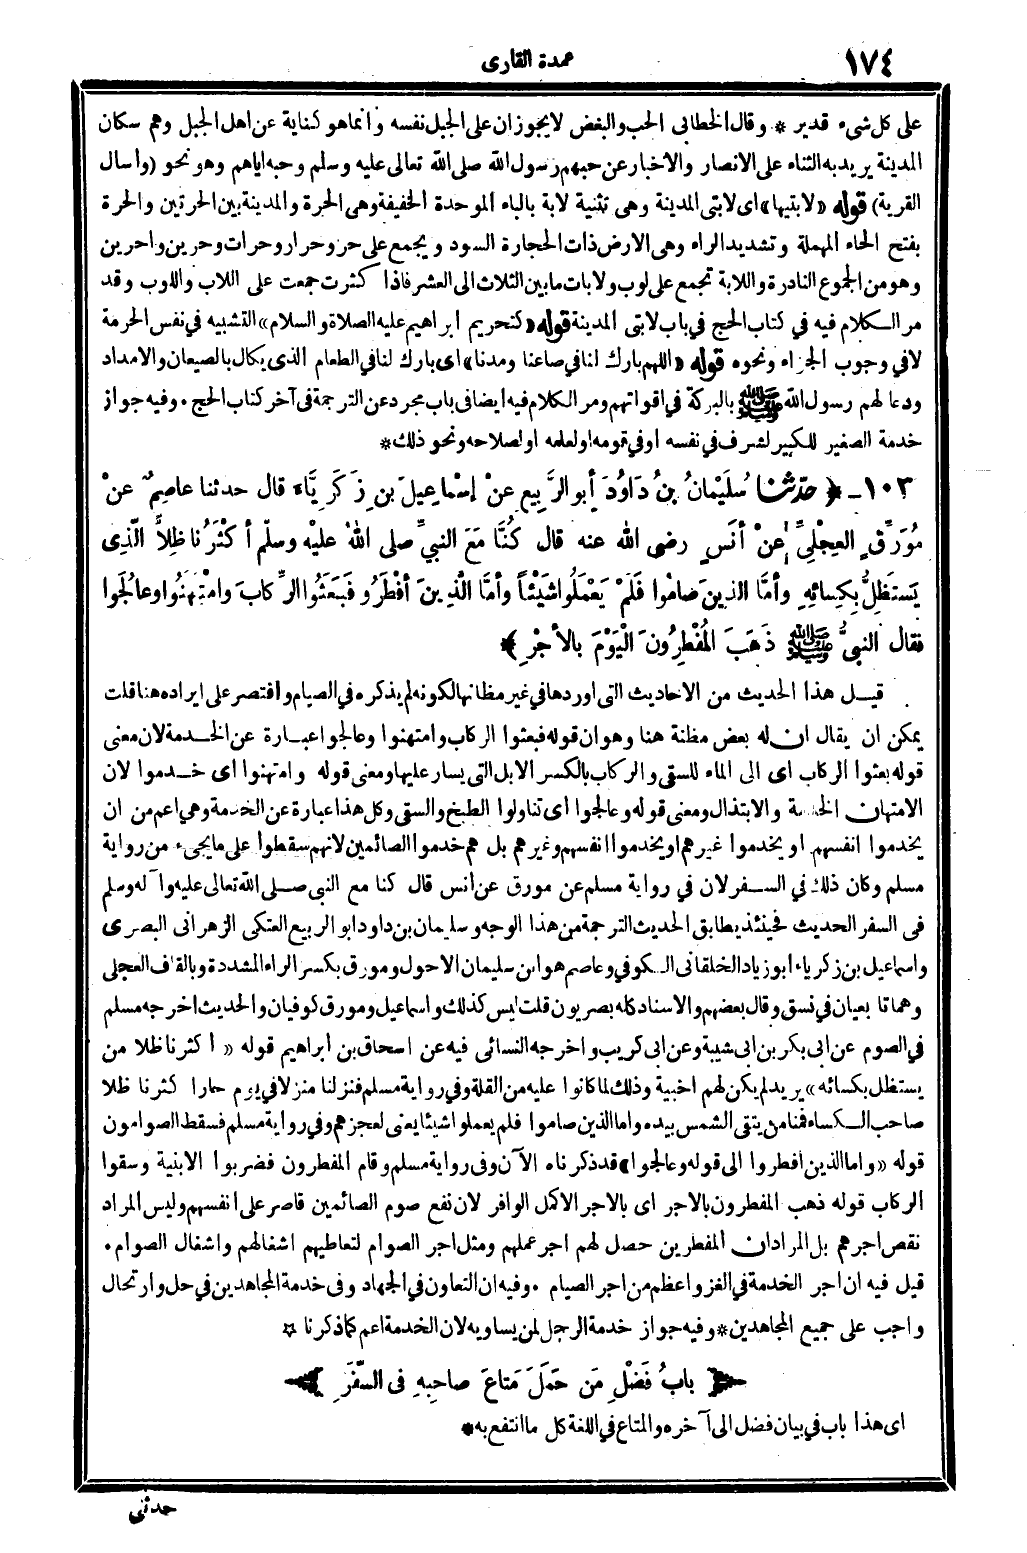 ١٧٤
عمدة القارى
على كل شىء قدير * وقال الخطابى الحب والبغض لا يجوز ان على الجبل نفسه وانما هو كناية عن اهل الجبل وهم سكان
المدينة يريد به الثناء على الانصار والاخبار عن حبهم رسول الله صلى الله تعالى عليه وسلم وحبه اياهم وهو نحو (واسأل
القرية) قوله «لابتيها» اى لابتى المدينة وهى تثنية لابة بالباء الموحدة الخفيفة وهى الحرة والمدينة بين الحرتين والحرة
بفتح الحاء المهملة وتشديد الراء وهى الارض ذات الحجارة السود ويجمع على حر وحرار وحرات وحرين واحرين
وهو من الجموع النادرة واللابة تجمع على لوب ولابات ما بين الثلاث الى العشر فاذا كثرت جمعت على اللاب واللوب وقد
مر الكلام فيه في كتاب الحج في باب لابتى المدينة قوله «كتحريم ابراهيم عليه الصلاة والسلام» التشبيه في نفس الحرمة
لا في وجوب الجزاء ونحوه قوله «اللهم بارك لنا في صاعنا ومدنا» اى بارك لنا في الطعام الذى يكال بالصيعان والامداد
ودعا لهم رسول الله ﷺ بالبركة في اقواتهم ومر الكلام فيه ايضا فى باب مجرد عن الترجمة فى آخر كتاب الحج . وفيه جواز
خدمة الصغير للكبير لشرف في نفسه او في قومه او لعلمه او لصلاحه ونحو ذلك *
١٠٣ - ﴿ حَدَّثَنَا سُلَيْمَانُ بنُ دَاوُدَ أبو الرَّبِيعِ عنْ إسْمَاعِيلَ بنِ زَكَرِيَّاءَ قال حدثنا عاصِمٌ عنْ
مُوَرِّقٍ العِجْلِيِّ عنْ أنَسٍ رضى الله عنه قال كُنَّا مَعَ النبيِّ صلى اللهُ عليْه وسلَّم أكْثَرُنا ظِلاًّ الَّذِى
يَسْتَظِلُّ بِكِسَائِهِ وأمَّا الذينَ صَامُوا فَلَمْ يَعْمَلُوا شَيْئاً وأمَّا الَّذِينَ أفْطَرُوا فَبَعَثُوا الرِّكابَ وامْتَهَنُوا وعالَجُوا
فقال النبيُّ ﷺ ذَهَبَ المُفْطِرُونَ الْيَوْمَ بالأجْرِ ﴾*
قيل هذا الحديث من الاحاديث التى اوردها في غير مظانها لكونه لم يذكره في الصيام واقتصر على ايراده هنا قلت
يمكن ان يقال ان له بعض مظنة هنا وهو ان قوله فبعثوا الركاب وامتهنوا وعالجوا عبارة عن الخدمة لان معنى
قوله بعثوا الركاب اى الى الماء للسقى والركاب بالكسر الابل التى يسار عليها ومعنى قوله وامتهنوا اى خدموا لان
الامتهان الخدمة والابتذال ومعنى قوله وعالجوا اى تناولوا الطبخ والسقى وكل هذا عبارة عن الخدمة وهى اعم من ان
يخدموا انفسهم او يخدموا غيرهم او يخدموا انفسهم وغيرهم بل هم خدموا الصائمين لانهم سقطوا على ما يجىء من رواية
مسلم وكان ذلك في السفر لان في رواية مسلم عن مورق عن انس قال كنا مع النبى صلى الله تعالى عليه وآله وسلم
فى السفر الحديث فحينئذ يطابق الحديث الترجمة من هذا الوجه وسليمان بن داود ابو الربيع العتكى الزهرانى البصرى
واسماعيل بن زكرياء ابو زياد الخلقانى الكوفي وعاصم هو ابن سليمان الاحول ومورق بكسر الراء المشددة وبالقاف العجلى
وهما تابعيان في نسق وقال بعضهم والاسناد كله بصريون قلت ليس كذلك واسماعيل ومورق كوفيان والحديث اخرجه مسلم
في الصوم عن ابى بكر بن ابى شيبة وعن ابى كريب واخرجه النسائى فيه عن اسحاق بن ابراهيم قوله «اكثرنا ظلا من
يستظل بكسائه» يريد لم يكن لهم اخبية وذلك لما كانوا عليه من القلة وفي رواية مسلم فنزلنا منزلا في يوم حار اكثرنا ظلا
صاحب الكساء فمنا من يتقى الشمس بيده واما الذين صاموا فلم يعملوا شيئا يعنى لعجزهم وفي رواية مسلم فسقط الصوامون
قوله «واما الذين افطروا الى قوله وعالجوا» قد ذكرناه الآن وفى رواية مسلم وقام المفطرون فضربوا الابنية وسقوا
الركاب قوله ذهب المفطرون بالاجر اى بالاجر الاكمل الوافر لان نفع صوم الصائمين قاصر على انفسهم وليس المراد
نقص اجرهم بل المراد ان المفطرين حصل لهم اجر عملهم ومثل اجر الصوام لتعاطيهم اشغالهم واشغال الصوام .
قيل فيه ان اجر الخدمة في الغزو اعظم من اجر الصيام . وفيه ان التعاون في الجهاد وفى خدمة المجاهدين في حل وارتحال
واجب على جميع المجاهدين * وفيه جواز خدمة الرجل لمن يساويه لان الخدمة اعم كما ذكرنا ☆
﴿ بابُ فَضْلِ مَن حَمَلَ مَتاعَ صاحِبِهِ فى السَّفَرِ ﴾
اى هذا باب في بيان فضل الى آخره والمتاع في اللغة كل ما انتفع به *
حدثنى